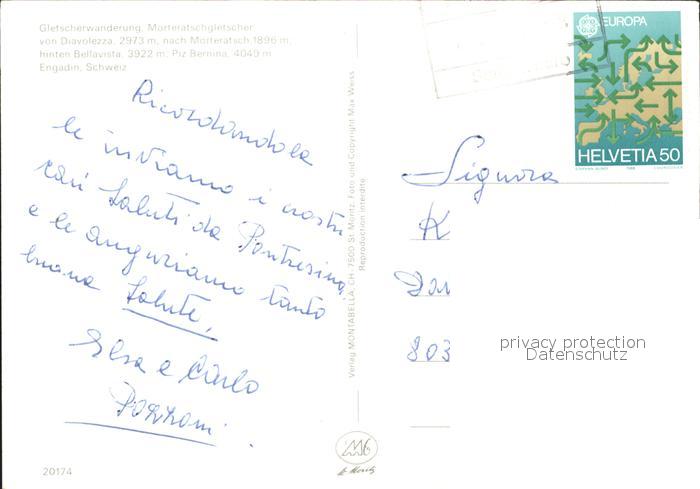 Gletscherwanderung, Morteratschgletscher
von Diavolezza, 2973 m, nach Morteratsch 1896 m,
hinten Bellavista, 3922 m, Piz Bernina, 4049 m
Engadin, Schweiz
Ricordandola
le inviamo i nostri
cari saluti da Pontresina
e le auguriamo tanto
buona salute,
Elsa e Carlo
Pozzoni.
20174
Verlag MONTABELLA, CH-7500 St. Moritz, Foto und Copyright Max Weiss
Reproduction interdite
EUROPA
HELVETIA 50
1988
COURVOISIER
Signora
K
803
privacy protection
Datenschutz